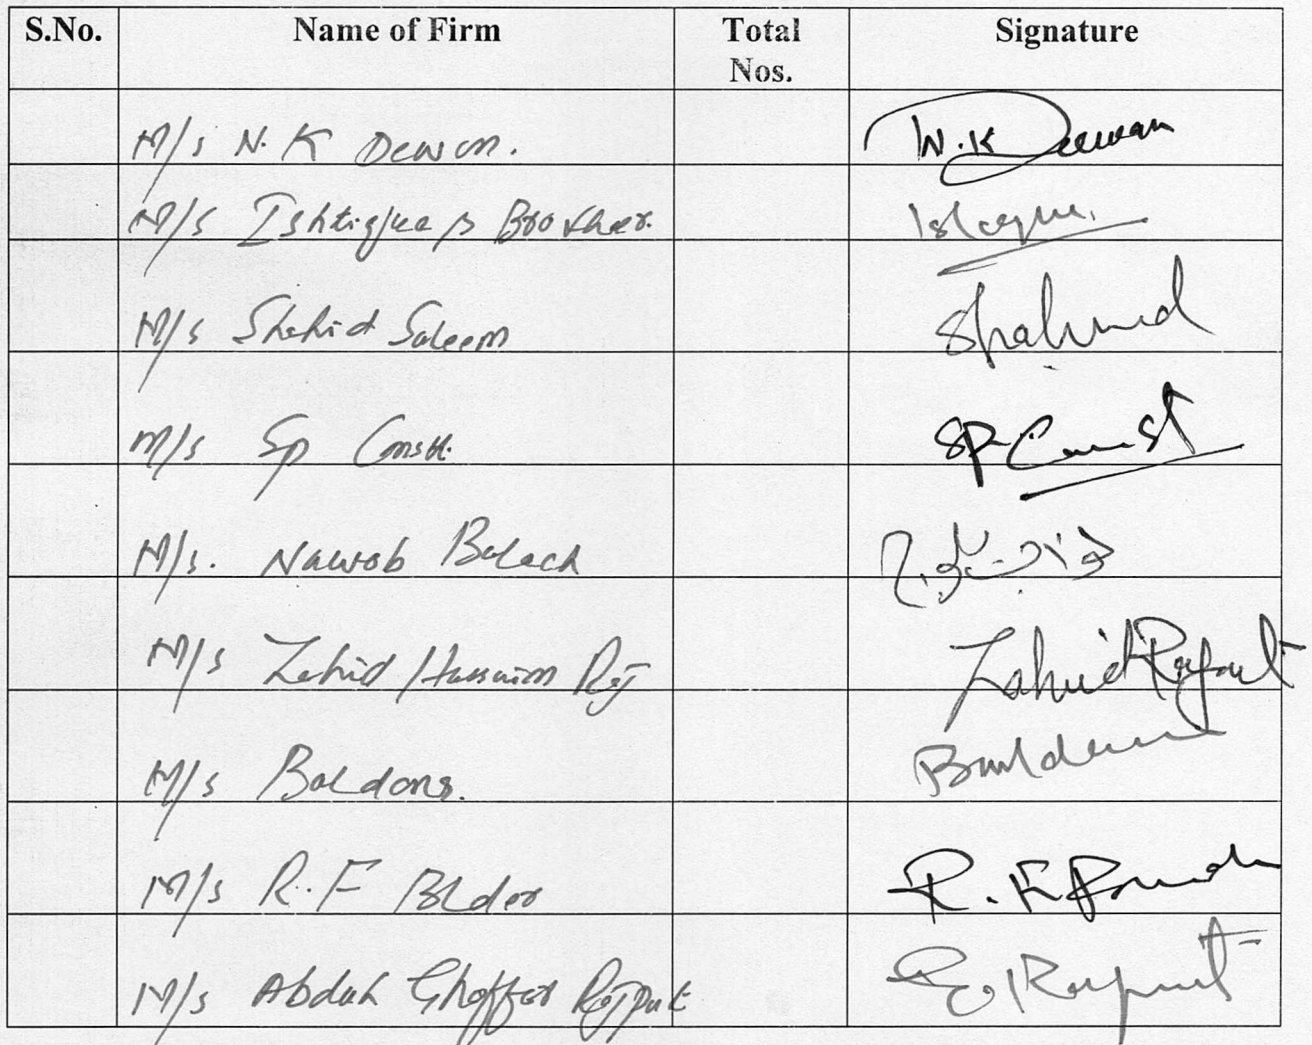 S.No. Name of Firm Total Nos. Signature
M/s N. K Dewan. N.K Deewan
M/s Ishtiqque & Brother.
M/s Shahid Saleem Shahid
M/s Sp Const. SP Const
M/s. Nawab Baloch نواب بلوچ
M/s Zahid Hussain Raj Zahid Rajput
M/s Boldons.
M/s R.F Blder R.F
M/s Abdul Ghaffar Rajput Rajput